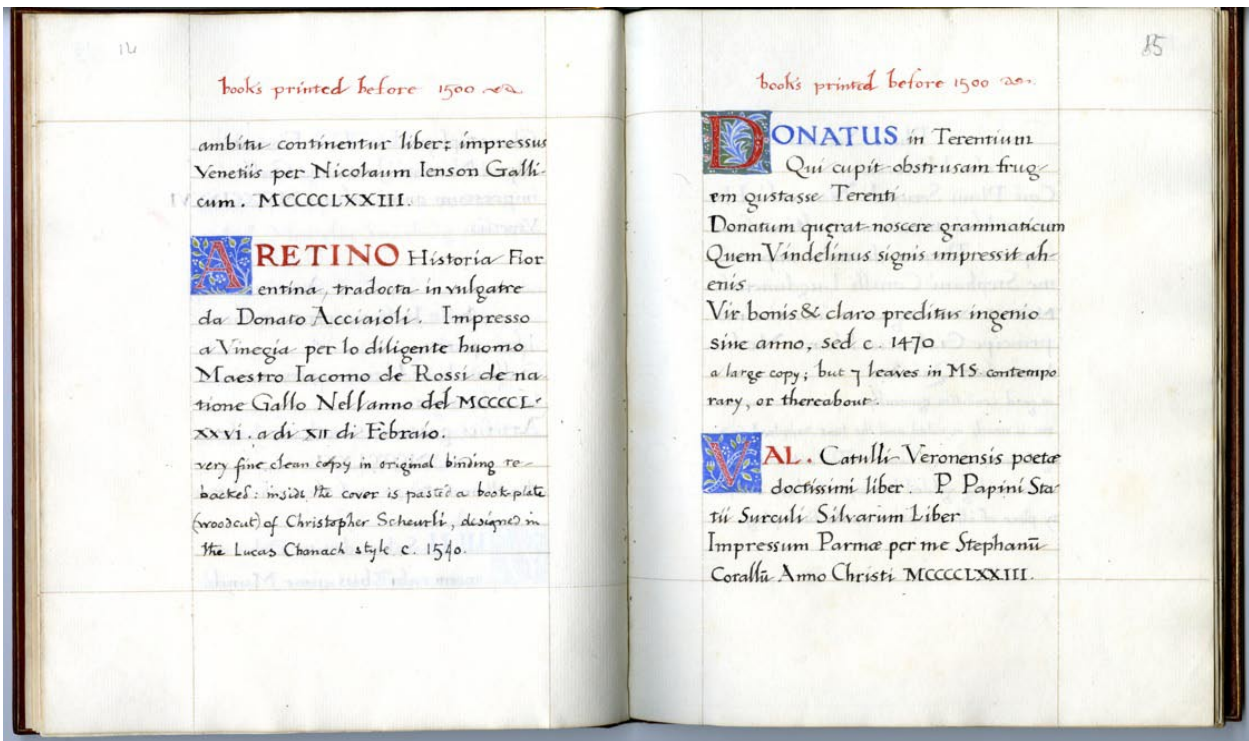 14
books printed before 1500
ambitu continentur liber: impressus
Venetiis per Nicolaum Ienson Galli-
cum. MCCCCLXXIII.
ARETINO Historia Fior
entina, tradocta in vulgatre
da Donato Acciaioli. Impresso
a Vinegia per lo diligente huomo
Maestro Iacomo de Rossi de na
tione Gallo Nell anno del MCCCCL-
XXVI. a di XII di Febraio.
very fine clean copy in original binding re-
backed: inside the cover is pasted a book-plate
(woodcut) of Christopher Scheurli, designed in
the Lucas Chanach style c. 1540.
85
books printed before 1500
DONATUS in Terentium
Qui cupit obstrusam frug-
em gustasse Terenti
Donatum quęrat noscere grammaticum
Quem Vindelinus signis impressit ah-
enis
Vir bonis & claro preditus ingenio
sine anno, sed c. 1470
a large copy; but 7 leaves in MS contempo
rary, or thereabout.
VAL. Catulli Veronensis poetæ
doctissimi liber. P Papini Sta-
tii Surculi Silvarum Liber
Impressum Parmæ per me Stephanū
Corallū Anno Christi MCCCCLXXIII.